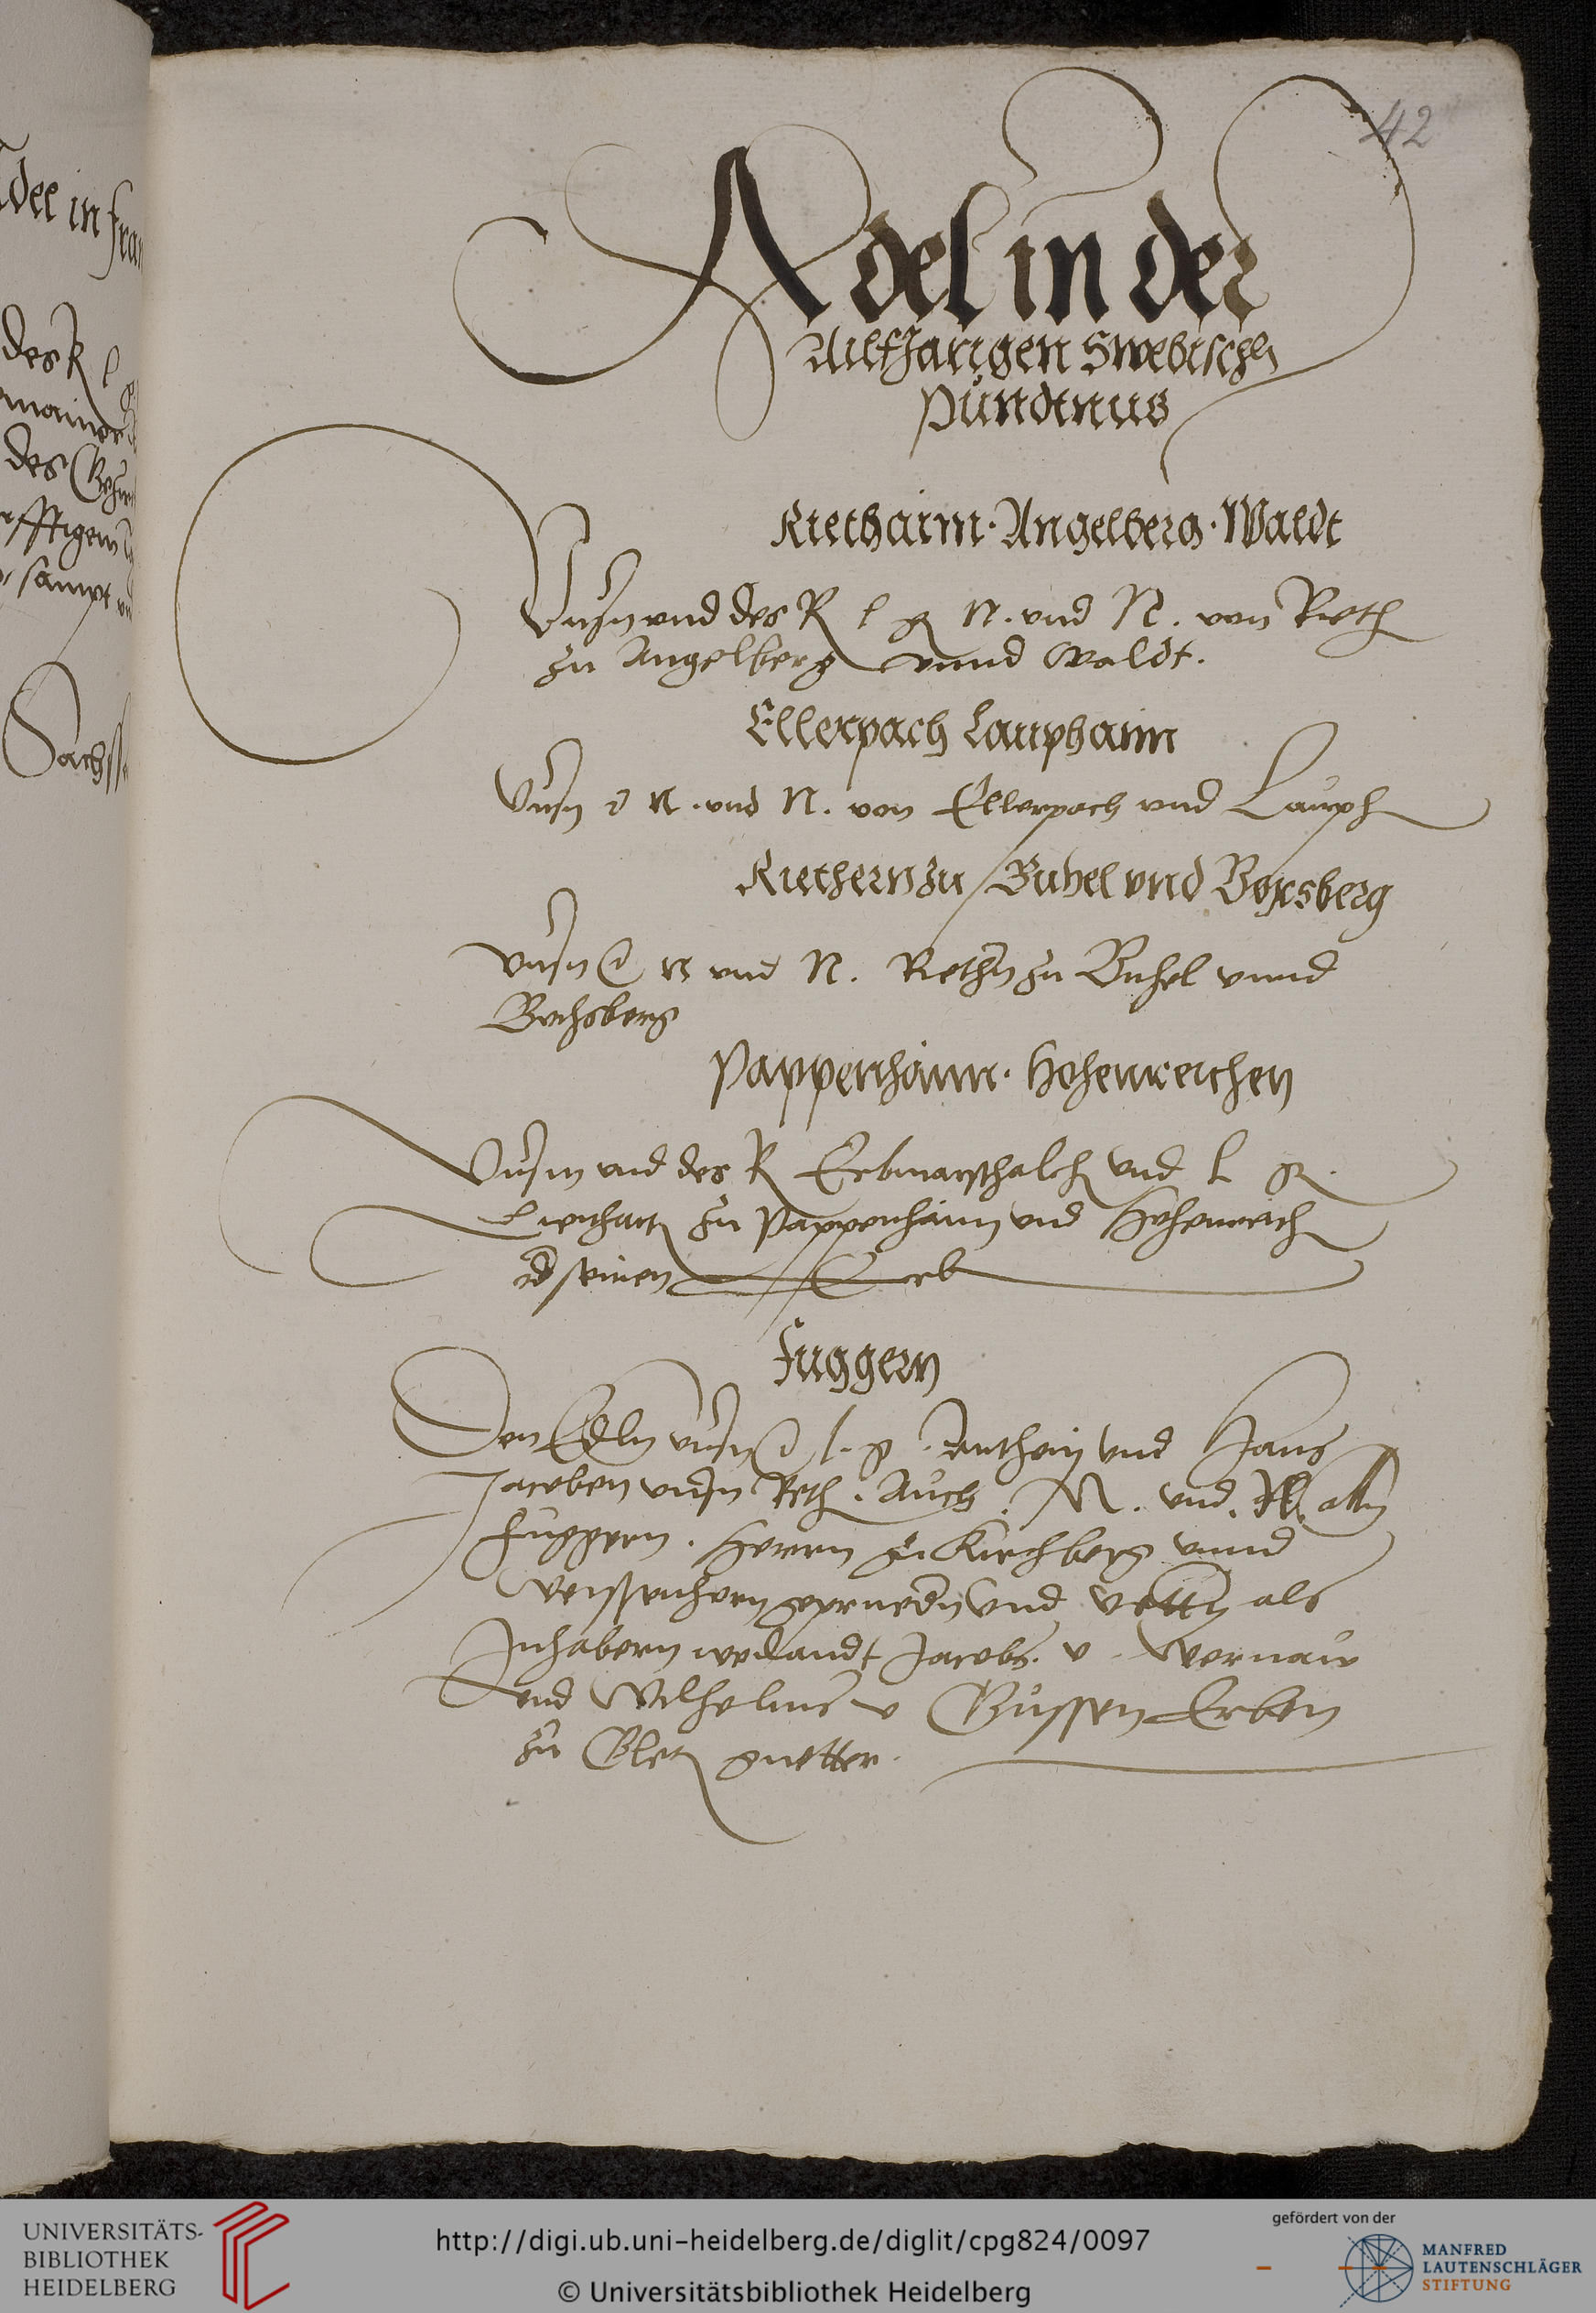 42
Adel in der
Ailfjarigen Swebischn
Püntnus
Riethaim · Angelberg · Waldt
Unsn und des R l g N. und N. von Rieth
zu Angelberg unnd Waldt.
Ellerpach Lauphaim
Unsn d N. und N. von Ellerpach und Lauph
Riethern zu Buhel und Boxsberg
Unsn N und N. Riethn zu Buhel unnd
Bochsberg
Pappenhaim · Hohenreichen
Unsm und des R Erbmarschalch und l g.
zu Pappenhaim und Hohenreich
seinen Erb
Fuggern
Den Edln unsn l. g. Anthoni und Hans
Jacoben unsn Reth. Auch. M. und. R. alln
Fuggern. Herrn zu Kirchberg unnd
Weissenhorn geprüedn und vettn als
Inhabern weilandt Jacobs. v. Wernaw
und Wilhelms v Güssen Erben
zu guetter.
del in fran
des R l g
des
sampt
Sachss
UNIVERSITÄTS-
BIBLIOTHEK
HEIDELBERG
http://digi.ub.uni-heidelberg.de/diglit/cpg824/0097
© Universitätsbibliothek Heidelberg
gefördert von der
MANFRED
LAUTENSCHLÄGER
STIFTUNG